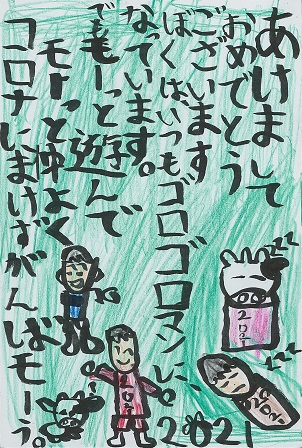 あけまして
おめでとう
ございます
ぼくはいつもゴロゴロマンに、
なっています。
でもモーっと遊んで
モーっと仲よく
コロナにまけずがんばモーう。
2021
2021
zzz
zzz